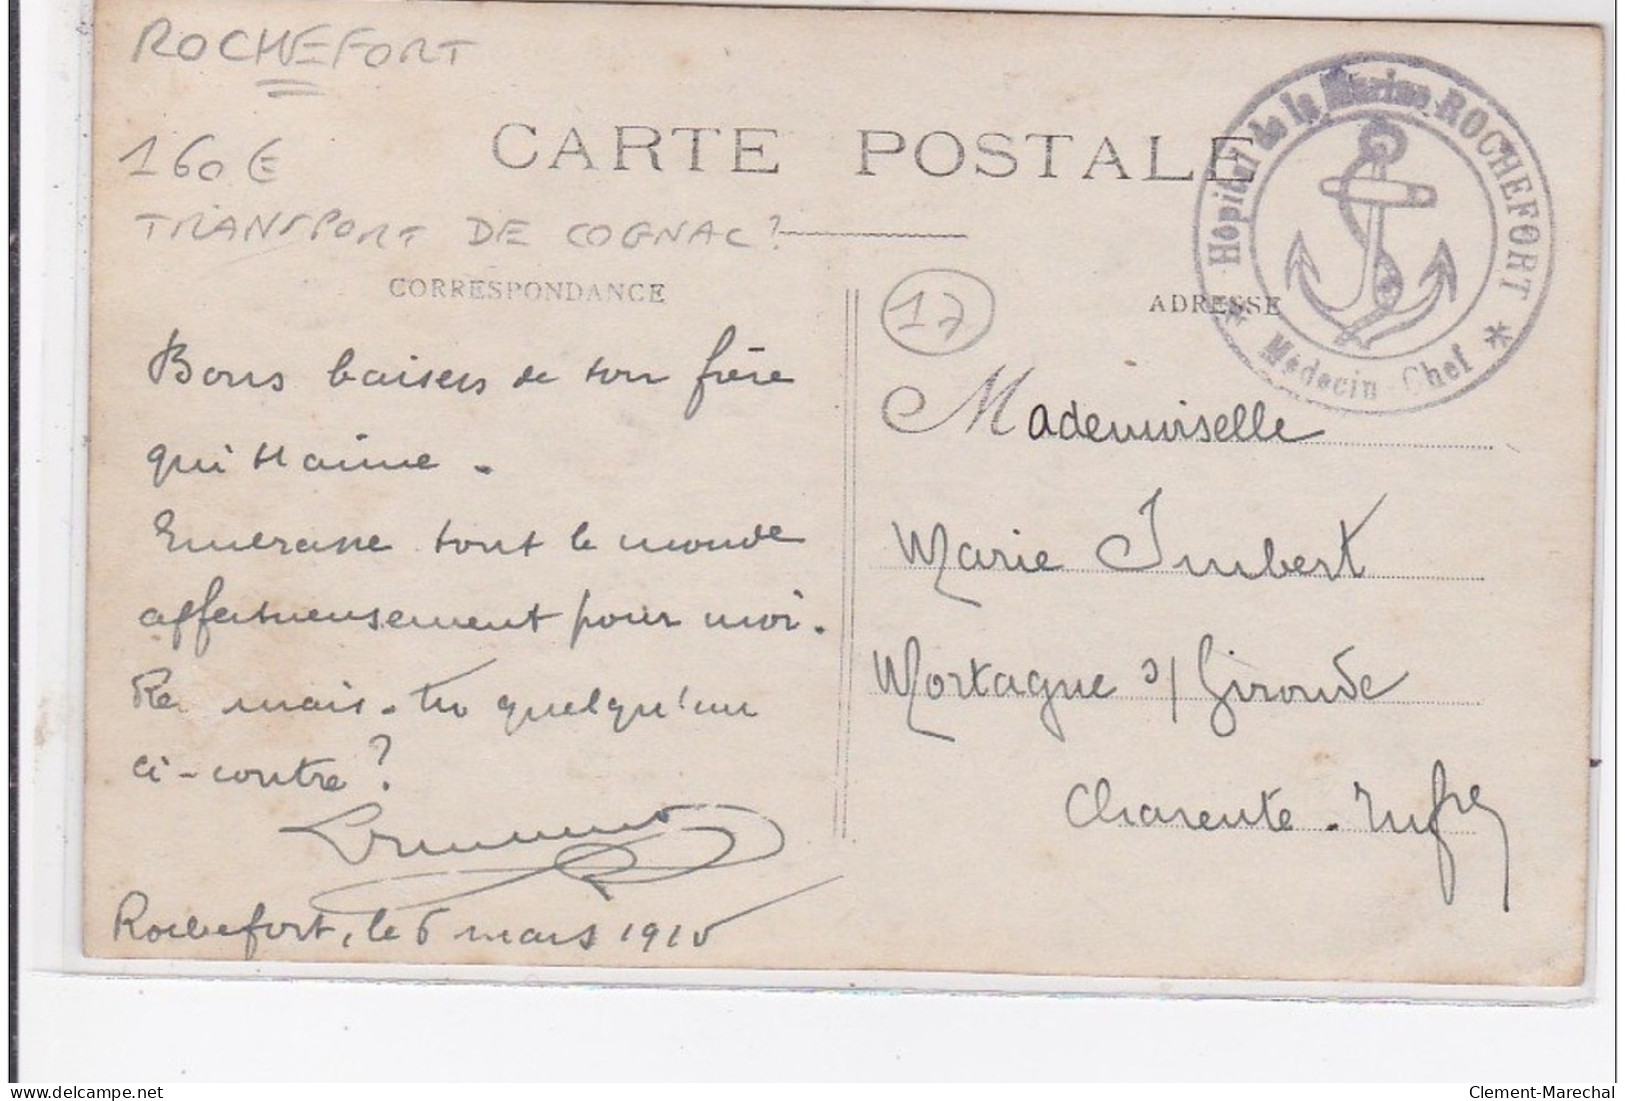 ROCHEFORT
160 €
TRANSPORT DE COGNAC?
CARTE POSTALE
Hôpital de la Marine ROCHEFORT
* Médecin-Chef *
CORRESPONDANCE
17
ADRESSE
Bons baisers de ton frère
qui t'aime.
Embrasse tout le monde
affectueusement pour moi.
mais-tu quelqu'un
ci-contre?
Rochefort, le 6 mars 1915
Mademoiselle
Marie Imbert
Mortagne s/ Gironde
Charente-Infre
delcampe.net
Clement-Marechal